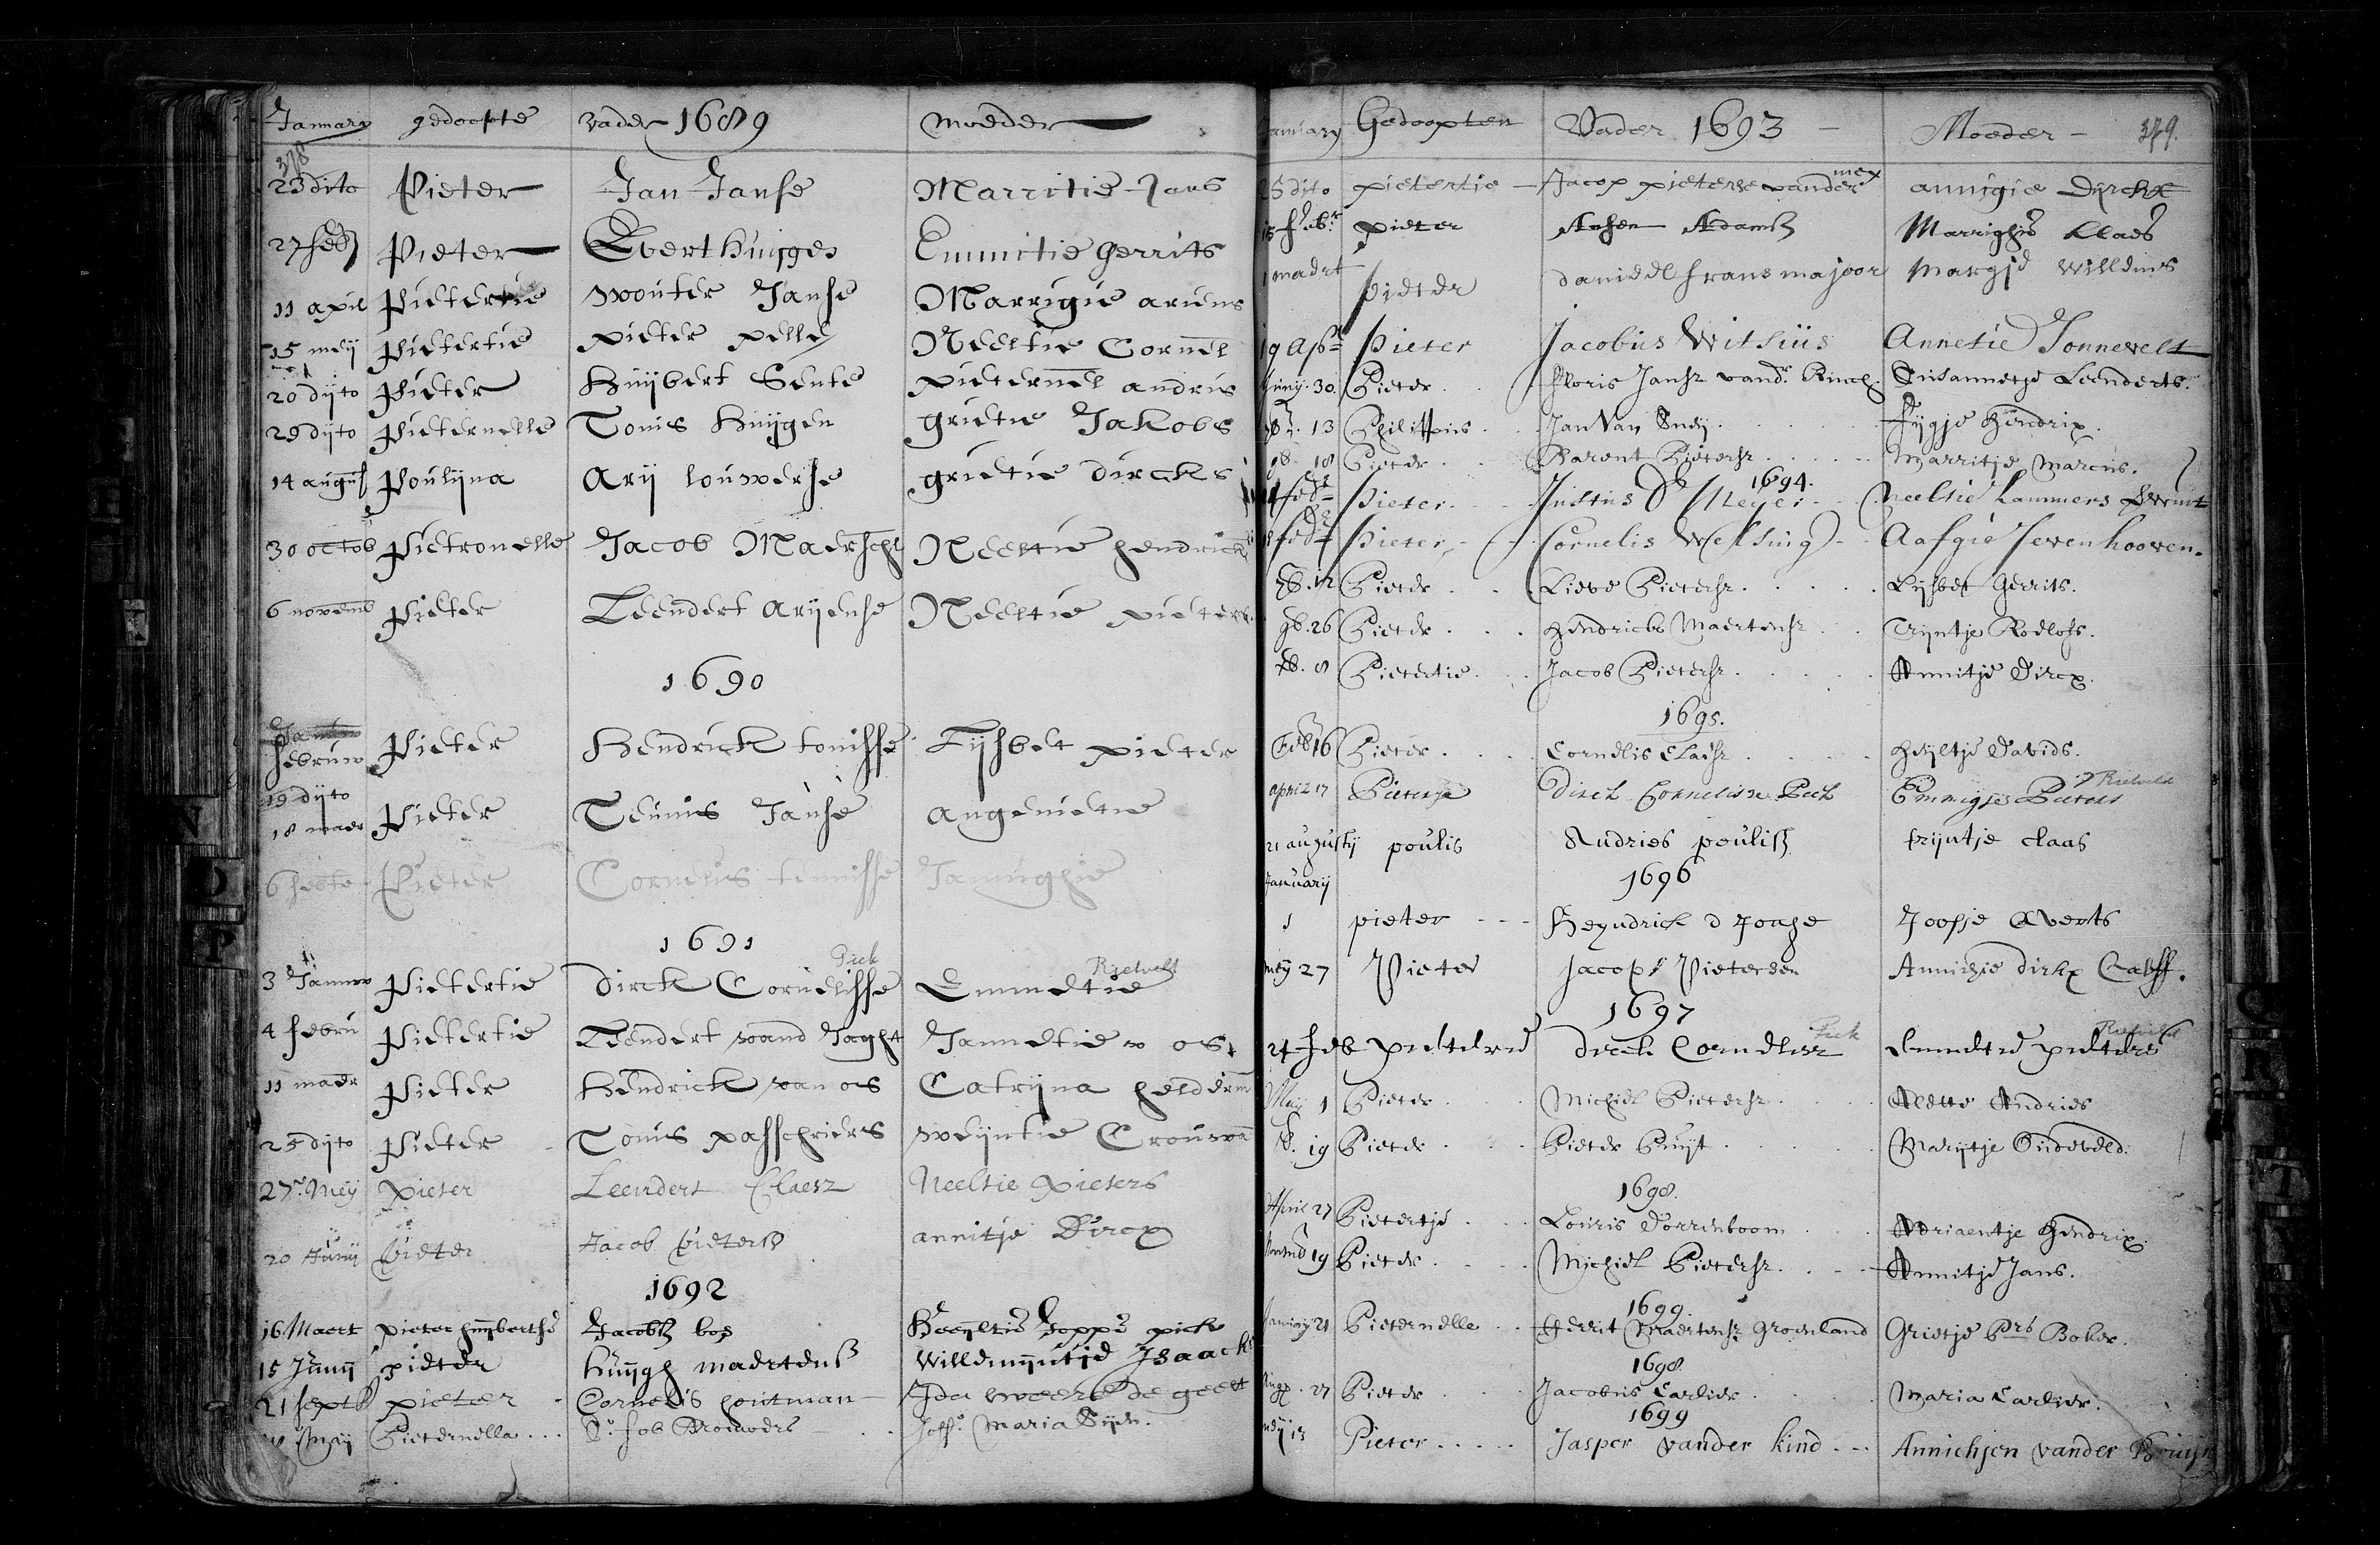 January gedoopte vader 1689 moeder
378
23 dito Pieter Jan Janse Marritie Jans
27 feb Pieter Evert Huijges Emmitie Gerrits
11 apil Pietertie wouter Janse Marrigie ariens
15 meij Pietertie pieter pelle Neeltie Cornel
20 dijto Pieter Huijbert Sente pieternel andries
29 dijto Pieternelle Tonis Huijgen grietie Jakobs
14 augus Poulijna Arij louwerse grietie dircks
30 octob Pietronelle Jacob Maersche Neeltie hendrick
6 novemb Pieter Leendert Arijense Neeltie pieters
1690
februw Pieter Hendrick tonisse Lijsbet pieter
19 dijto
18 maer Pieter Teunis Janse angenietie
6 sept Pieter Cornelis tonisse Januighie
1691
Pick Rietvelt
3 Januw Pietertie dirck Cornelisse Emmetie
4 febru Pietertie Leendert vand Jaght Jannetie v os
11 maer Pieter Hendrick van os Catrijna helderm
25 dijto Pieter Tonis passchiers weijntie Crouwe
27 Meij pieter Leendert Claesz Neeltie pieters
20 Junij Pieter Jacob Pieters annitje Dircx
1692
16 Maert pieter huijberthe Jacobs bos Heeyltie Joppe pick
15 Junij pieter Huijgh maertens Willemijntje Isaacks
21 sept pieter Cornelis houtman Ida weere de geest
Maij Pieternella Job Brouwers Joff. Maria Sijdr.
January Gedoopten Vader 1693 Moeder 379
mey
25 dito pietertie Jacop pieterse vander annigie Dirckx
15 febr pieter Ansen Adams Marrighie Claes
1 maert pieter daniel frans majoor Margje Willems
19 Apr Pieter Jacobus Witsius Annetie Sonnevelt
Junij 30 Pieter Floris Jansz vandr Binck Susannetje Leenderts
13 Philippus Jan Van Sneij Fijgje Hendrix
18 Pieter Barent Pietersz Marritje Marcus
1694
Pieter Justus D Meijer Neeltie Lammers
Pieter Cornelis Welsing Aafgie Sevenhooven
Pieter Lieve Pietersz Lijsbet Gerrits
9b. 26 Pieter Hendricks Maertensz Trijntje Roelofs
8 Pietertie Jacob Pietersz Annitje Dircx
1695
Feb 16 Pieter Cornelis Claesz Heijltje Davids
Rietveld
april 17 Pietertje Dirck Cornelisse Peck Emmigje Pieters
21 augustij poulis Andries poulisz trijntje claas
January 1696
1 pieter Heyndrick d Jonge Joosje Everts
meij 27 Pieter Jacop Pietersen Annichie dirkx Calff
1697
Pick Rietveld
24 feb pieternel dirck Cornelisz Emmetie pieters
Maij 1 Pieter Michiel Pietersz Aeltie Andries
19 Pieter Pieter Kuijt Marijtje Oudeveld
1698
April 27 Pietertje Louris Dorrenboom Adriaentje Hendrix
19 Pieter Michiel Pietersz Annitje Jans
1699
Januarij 21 Pieternelle Gerrit Maertensz Groenland Grietje Prs Boker
1698
27 Pieter Jacobus Carlier Maria Carlier
1699
meij 13 Pieter Jasper vander kind Annichjen vander Bruijn